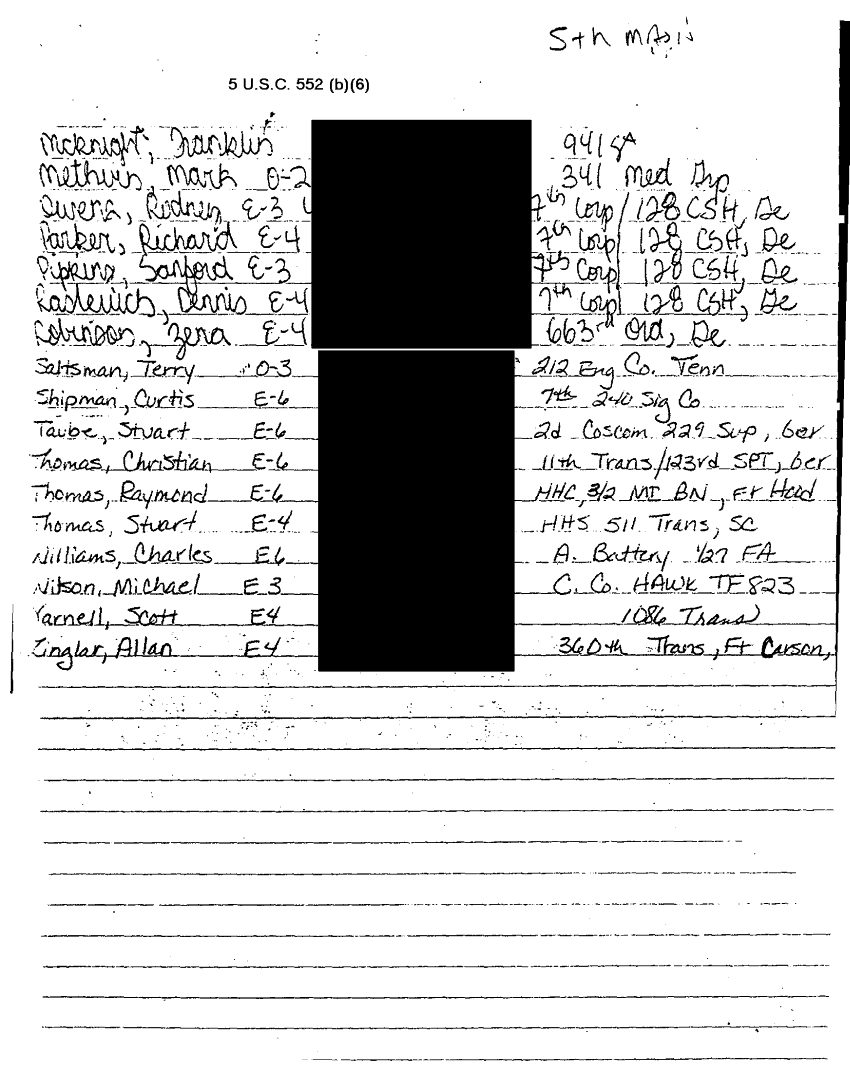 5th MAIN
5 U.S.C. 552 (b)(6)
McKnight, Franklin 941
Methvin, Mark O-2 341 Med Grp
Owens, Rodney E-3 7th Corp/128 CSH, Ge
Parker, Richard E-4 7th Corp/ 128 CSH, Ge
Pipkins, Sanford E-3 7th Corp/ 128 CSH, Ge
Dennis E-4 7th Corp/ 128 CSH, Ge
Robinson, Zena E-4 663rd Ord, Ge
Saltsman, Terry O-3 212 Eng Co. Tenn
Shipman, Curtis E-6 7th 240 Sig Co
Taube, Stuart E-6 2d Coscom 229 Sup, Ger
Thomas, Christian E-6 11th Trans/123rd SPT, Ger
Thomas, Raymond E-6 HHC, 3/2 MI BN, Ft Hood
Thomas, Stuart E-4 HHS 511 Trans, SC
Williams, Charles E6 A. Battery 1/27 FA
Wilson, Michael E3 C. Co. HAWK TF 823
Yarnell, Scott E4 1086 Trans
Zinglar, Allan E4 360th Trans, Ft Carson,